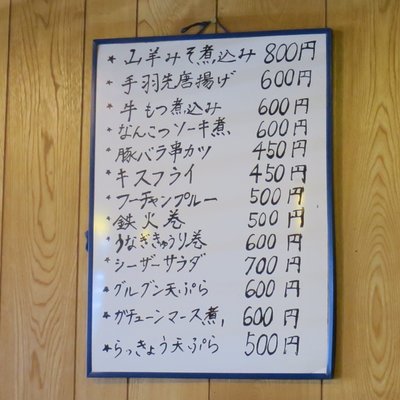 * 山羊みそ煮込み 800円
* 手羽先唐揚げ 600円
* 牛もつ煮込み 600円
* なんこつソーキ煮 600円
* 豚バラ串カツ 450円
* キスフライ 450円
* フーチャンプルー 500円
* 鉄火巻 500円
* うなぎきゅうり巻 600円
* シーザーサラダ 700円
* グルグン天ぷら 600円
* ガチューンマース煮 600円
* らっきょう天ぷら 500円